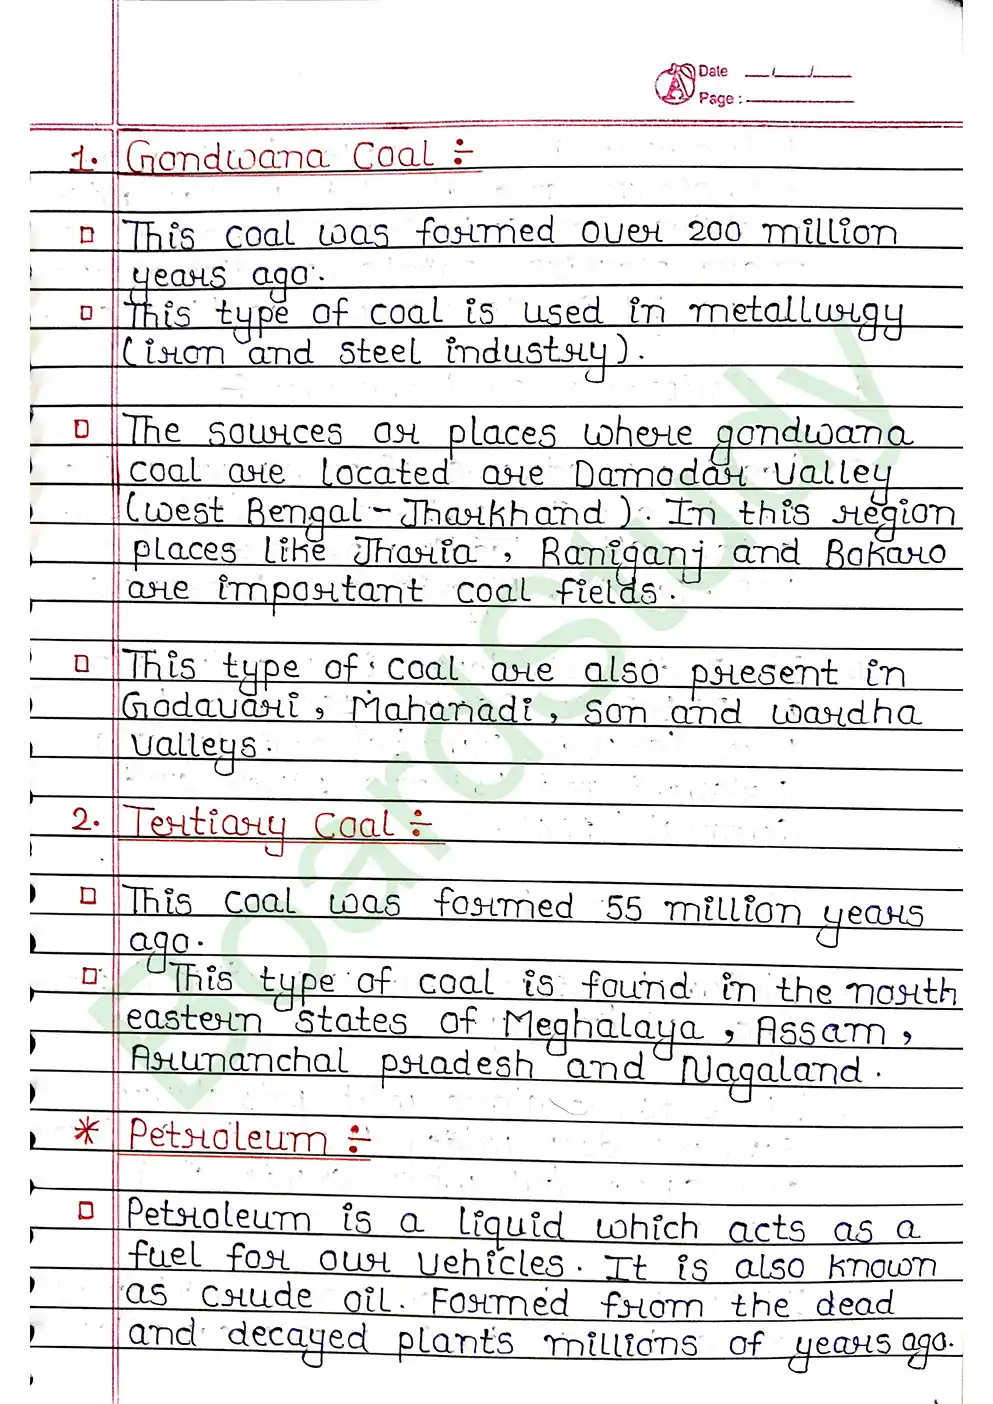 Date __/__/__
Page :
1. Gondwana Coal ÷
□ This coal was formed over 200 million
years ago.
□ This type of coal is used in metallurgy
(iron and steel industry).
□ The sources or places where gondwana
coal are located are Damodar Valley
(West Bengal - Jharkhand). In this region
places like Jharia, Raniganj and Bokaro
are important coal fields.
□ This type of coal are also present in
Godavari, Mahanadi, Son and wardha
valleys.
2. Tertiary Coal ÷
□ This coal was formed 55 million years
ago.
□ This type of coal is found in the north
eastern states of Meghalaya, Assam,
Arunanchal pradesh and Nagaland.
* Petroleum ÷
□ Petroleum is a liquid which acts as a
fuel for our vehicles. It is also known
as crude oil. Formed from the dead
and decayed plants millions of years ago.
BoardStudy